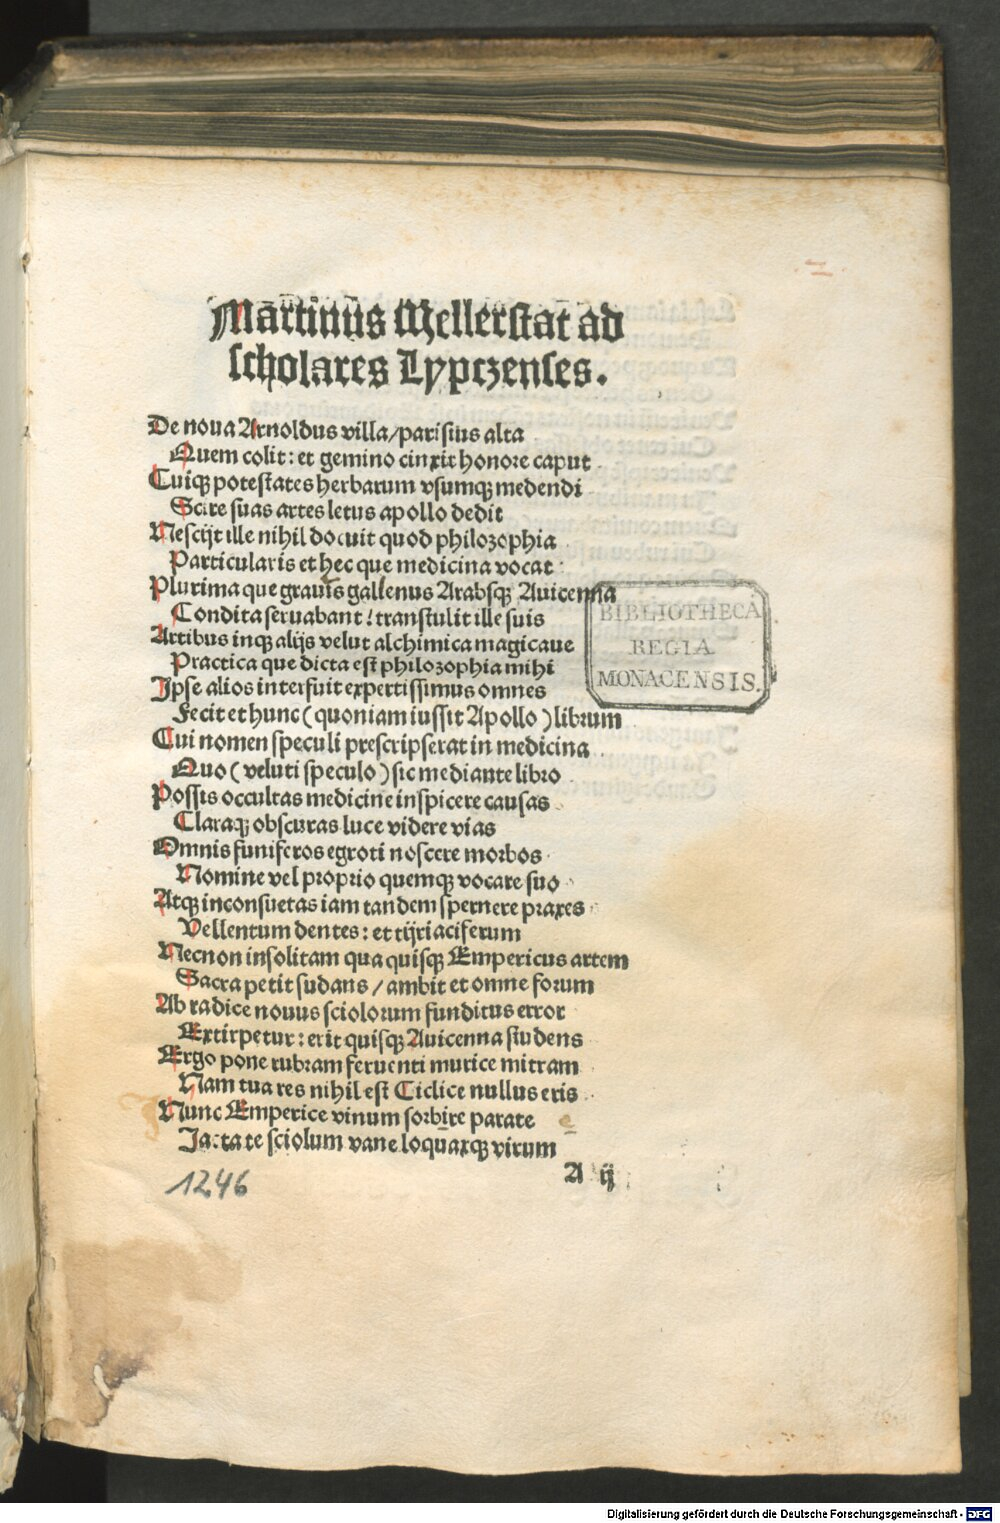 Martinus Mellerstat ad
scholares Lypczenses.
De noua Arnoldus villa/parisius alta
Quem colit: et gemino cinxit honore caput
Cuiqꝫ potestates herbarum vsumqꝫ medendi
Scire suas artes letus apollo dedit
Nescijt ille nihil docuit quod philozophia
Particularis et hec que medicina vocat
Plurima que grauis gallenus Arabsqꝫ Auicenna
Condita seruabant: transtulit ille suis
Artibus inqꝫ alijs velut alchimica magicaue
Practica que dicta est philozophia mihi
Ipse alios interfuit expertissimus omnes
Fecit et hunc (quoniam iussit Apollo) librum
Cui nomen speculi prescripserat in medicina
Quo (veluti speculo) sic mediante libro
Possis occultas medicine inspicere causas
Claraqꝫ obscuras luce videre vias
Omnis funiferos egroti noscere morbos
Nomine vel proprio quemqꝫ vocare suo
Atqꝫ inconsuetas iam tandem spernere praxes
Vellentum dentes: et tijriaciferum
Necnon insolitam qua quisqꝫ Empericus artem
Sacra petit sudans/ambit et omne forum
Ab radice nouus sciolorum funditus error
Extirpetur: erit quisqꝫ Auicenna studens
Ergo pone rubram feruenti murice mitram
Nam tua res nihil est Ciclice nullus eris
Nunc Emperice vinum sorbire parate
Jacta te sciolum vane loquaxqꝫ virum
A ij
1246
BIBLIOTHECA
REGIA
MONACENSIS.
Digitalisierung gefördert durch die Deutsche Forschungsgemeinschaft - DFG